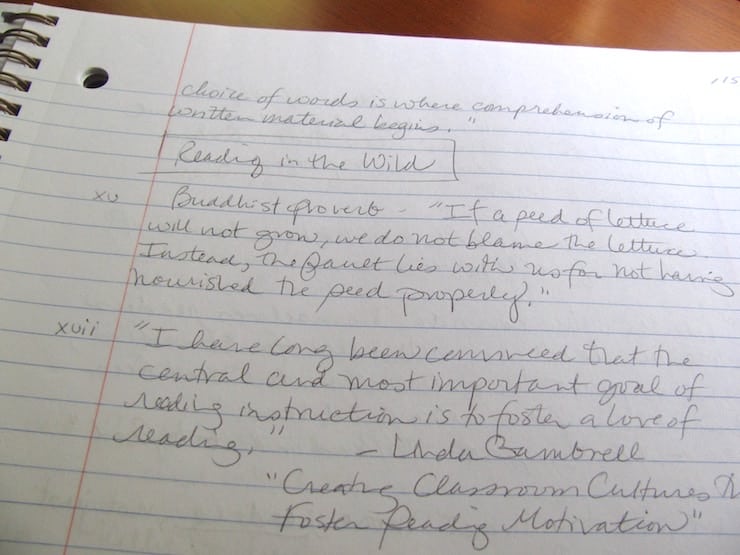 115
choice of words is where comprehension of
written material begins."
Reading in the Wild
xv Buddhist proverb - "If a seed of lettuce
will not grow, we do not blame the lettuce.
Instead, the fault lies with us for not having
nourished the seed properly."
xvii "I have long been convinced that the
central and most important goal of
reading instruction is to foster a love of
reading." - Linda Gambrell
"Creating Classroom Cultures
Foster Reading Motivation"